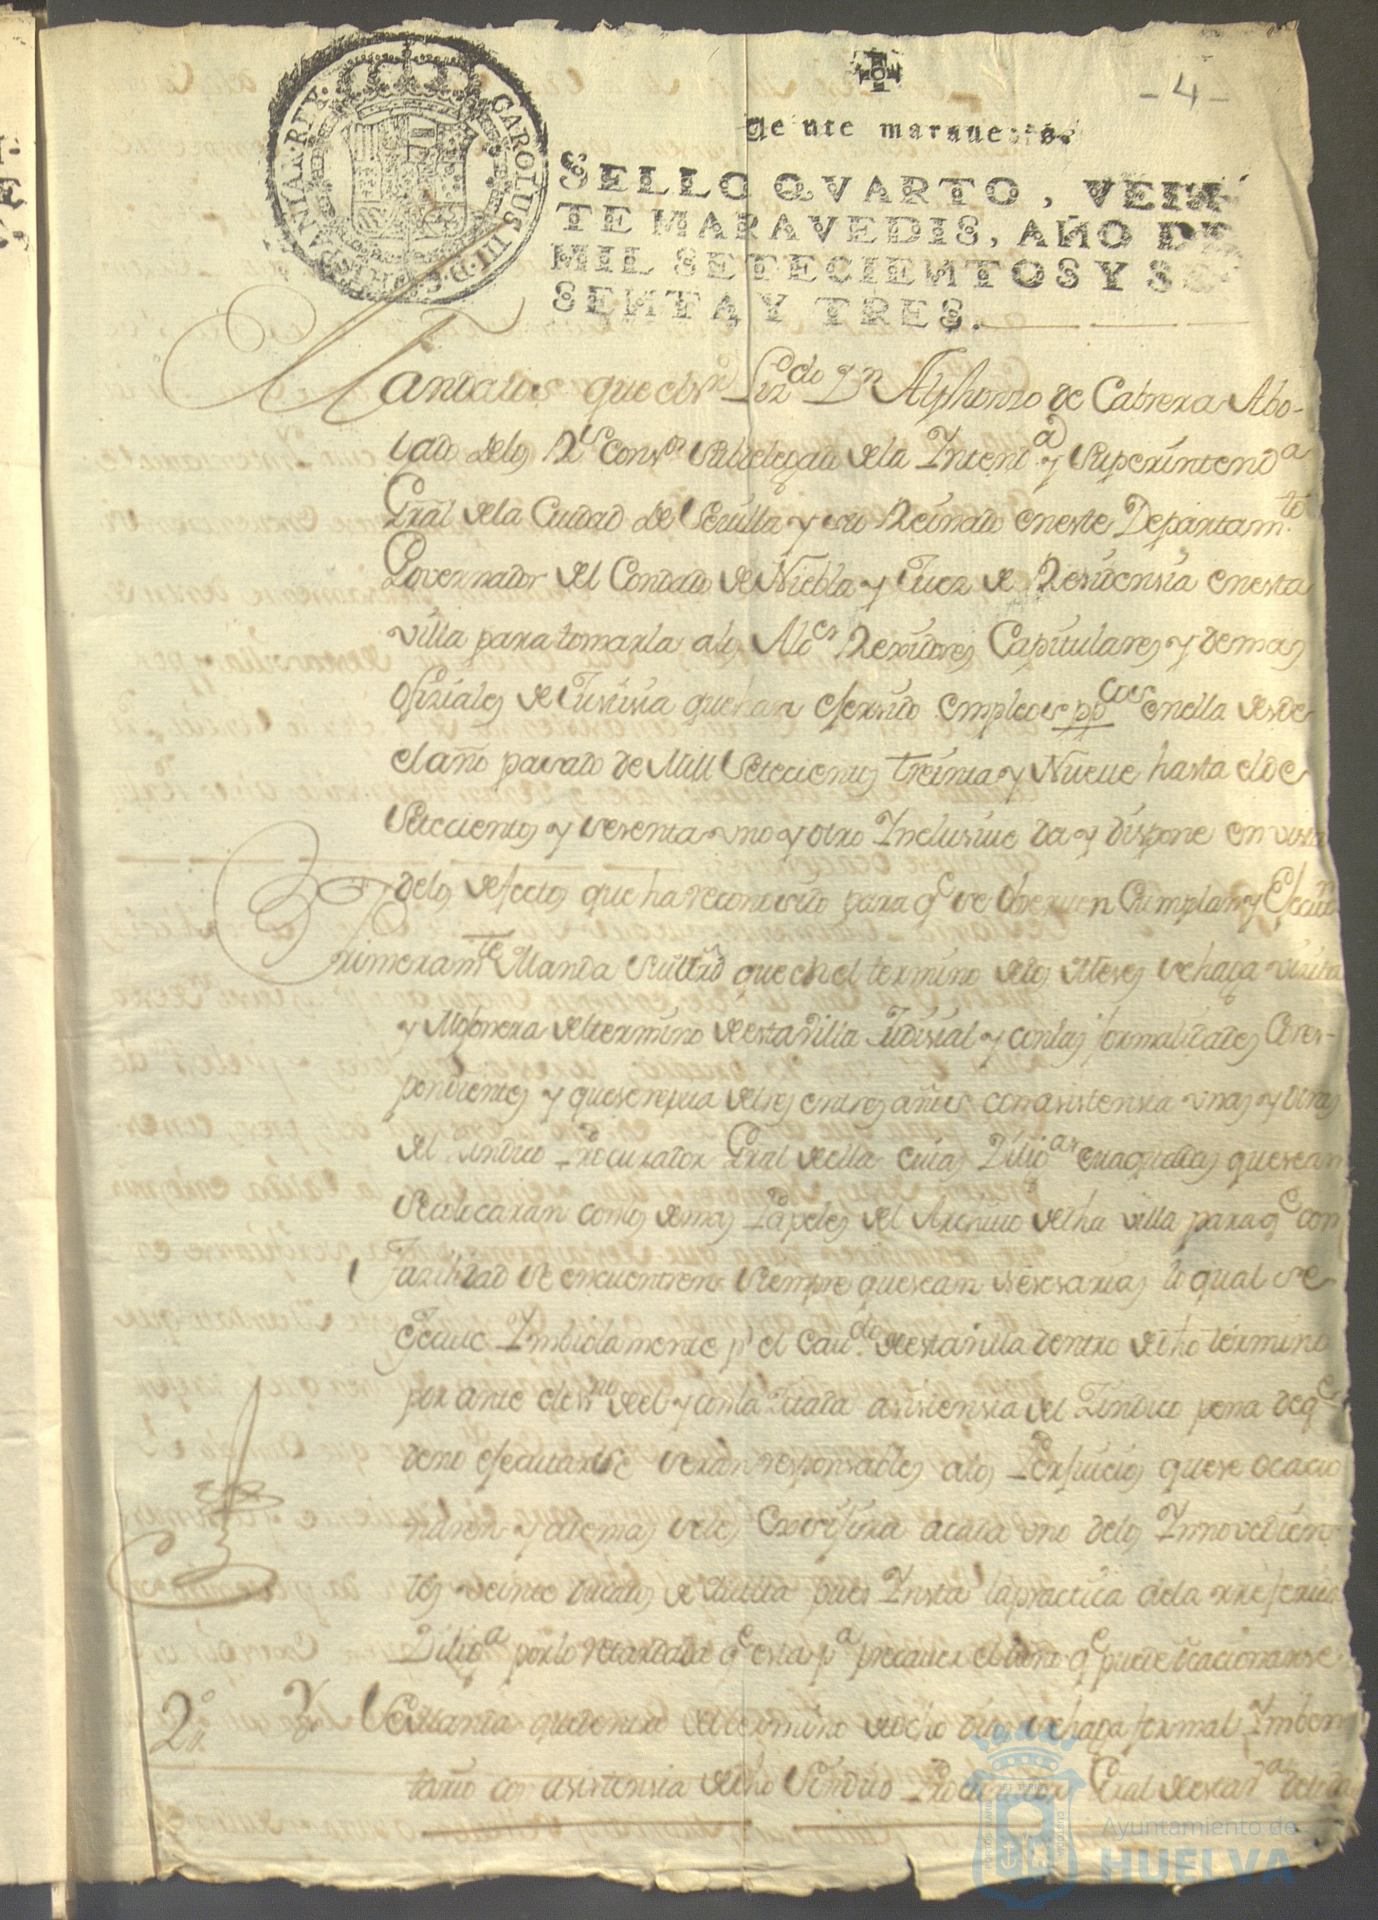 - 4 -
CAROLUS III D.G. HISPANIAR. REX.
Veinte marauedis.
SELLO QVARTO, VEIN
TE MARAVEDIS, AÑO DE
MIL SETECIENTOS Y SE
SENTA, Y TRES.
Mandatos que el sr Lizdo Dn Alphonso de Cabrera Abo-
gado delos Rs Consos Subdelegado dela Intenda y Superintenda
Gral dela Ciudad de Sevilla y su Reinado eneste Departamto
Governador del Condado de Niebla y Juez de Residensia enesta
villa para tomarla alos Alces Rexidores Capitulares y demas
ofiziales de Justisia que han esersido empleos ppcos enella desde
el año pasado de Mill Setecientos treinta y Nueue hasta el de
Setecientos y sesenta uno y otro Inclusiue da y dispone en vista
delos defectos que ha reconosido para qe se obseruen Cumplan y Executen
Primeramte Manda su mrd que en el termino de dos Meses se haga visita
y Mojonera del termino de esta villa Judisial y con las formalidades Corres-
pondientes y que se repita de tres en tres años con asistensia unas y otras
del Sindico Procurador Gral de ella cuias Diligas euaquadas que sean
se colocaran con los demas Papeles del Archiuo de dha villa para qe con
fazilidad se encuentren siempre que sean nesesarias lo qual se
execute Imbiolamente pr el Caudo de esta villa dentro de dho termino
por ante el essno de el y con la zitada asistensia del Sindico pena de qe
de no esecutarse seran responsables a los Perjuicios que se ocacio
naren y ademas se les Exsigira a cada uno de los Innovedien
tes veinte ducados de Multa pues Insta la practica de la referida
Diliga por lo retardada qe esta pa precauer el daño qe puede ocacionarse
2o Yt Se Manda que dentro del termino de ocho dias se haga formal Imben
tario con asistensia de dho Sindico Procurador Gral de esta va de todos
Ayuntamiento de
HUELVA